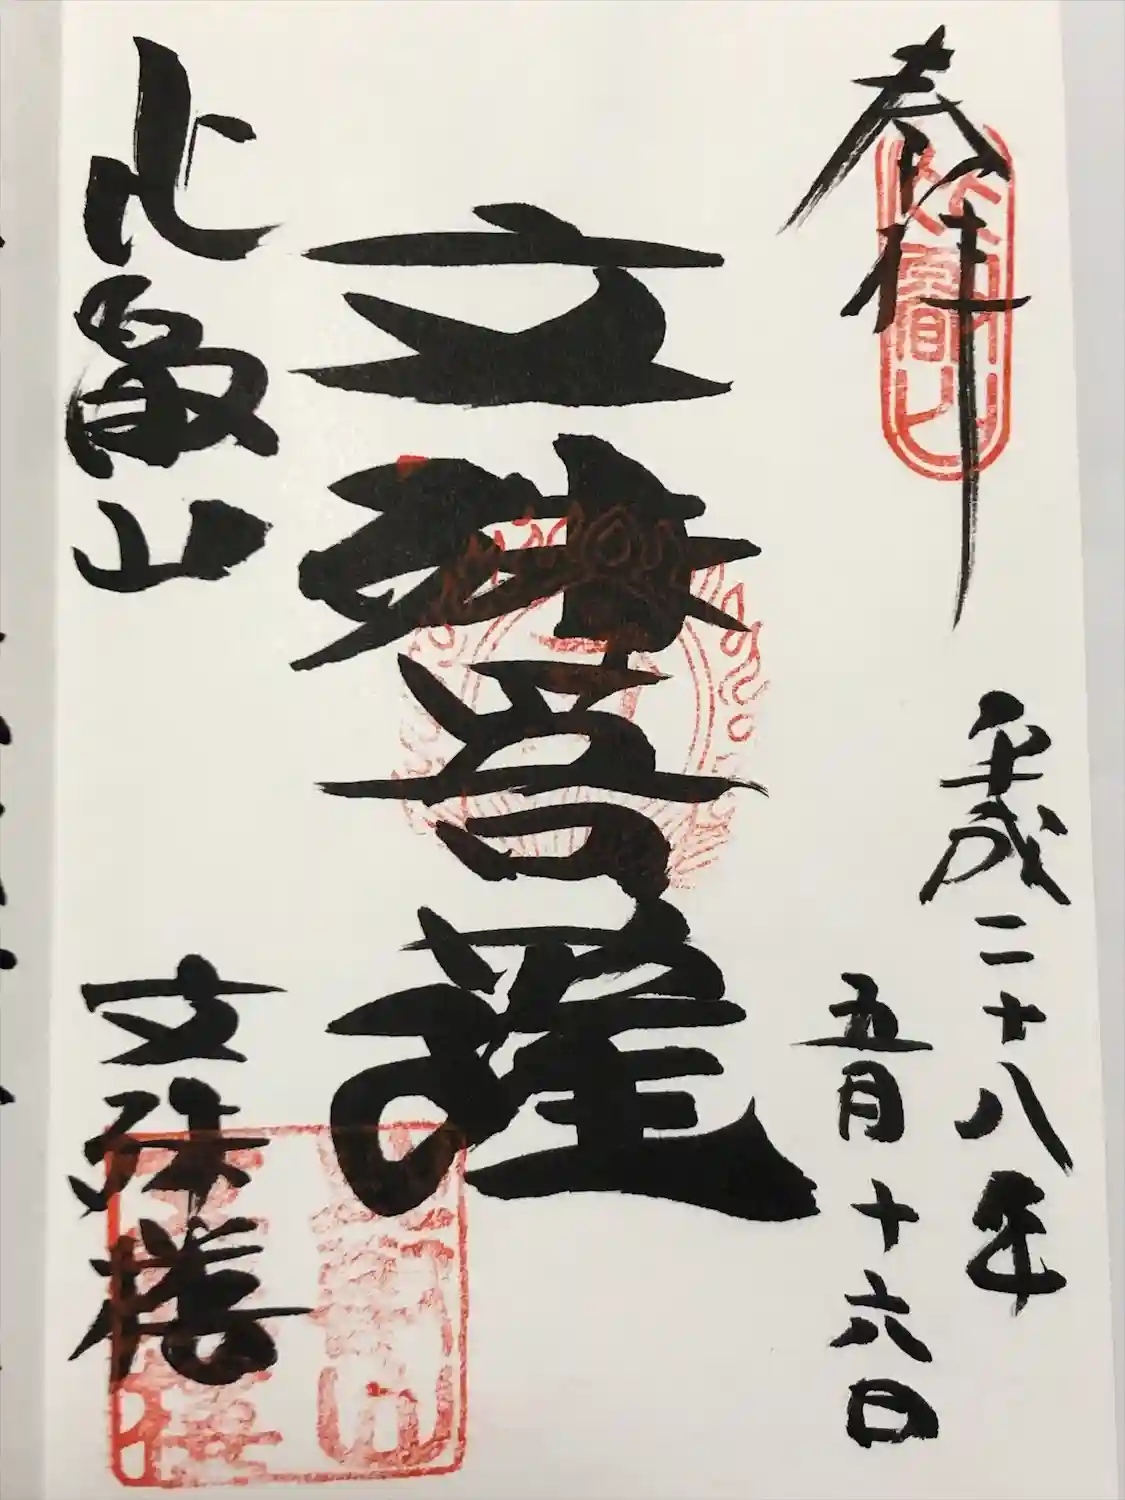 奉拝
平成二十八年
五月十六日
文殊菩薩
比叡山
文殊楼
比叡山